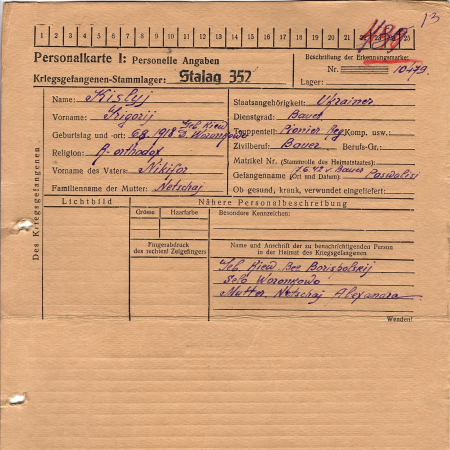 13
1 2 3 4 5 6 7 8 9 10 11 12 13 14 15 16 17 18 19 20 21 22 23 24 25
Personalkarte I: Personelle Angaben
Kriegsgefangenen-Stammlager: Stalag 352
Beschriftung der Erkennungsmarke
Nr. 10479
Lager:
Des Kriegsgefangenen
Name: Kislyj
Vorname: Grigorij
Geburtstag und -ort: 6.8.1918 Geb. Kiew D. Woronkowo
Religion: g. orthodox
Vorname des Vaters: Nikifor
Familienname der Mutter: Netschaj
Staatsangehörigkeit: Ukrainer
Dienstgrad: Bauer
Truppenteil: Pionier Reg Komp. usw.:
Zivilberuf: Bauer Berufs-Gr.:
Matrikel Nr. (Stammrolle des Heimatstaates):
Gefangennahme (Ort und Datum):
Ob gesund, krank, verwundet eingeliefert:
Lichtbild
Nähere Personalbeschreibung
Grösse Haarfarbe
Besondere Kennzeichen:
Fingerabdruck
des rechten! Zeigefingers
Name und Anschrift der zu benachrichtigenden Person
in der Heimat des Kriegsgefangenen
Geb. Kiew Bez Borispolskij
Selo Woronkowo
Mutter Netschaj Alexandra
Wenden!